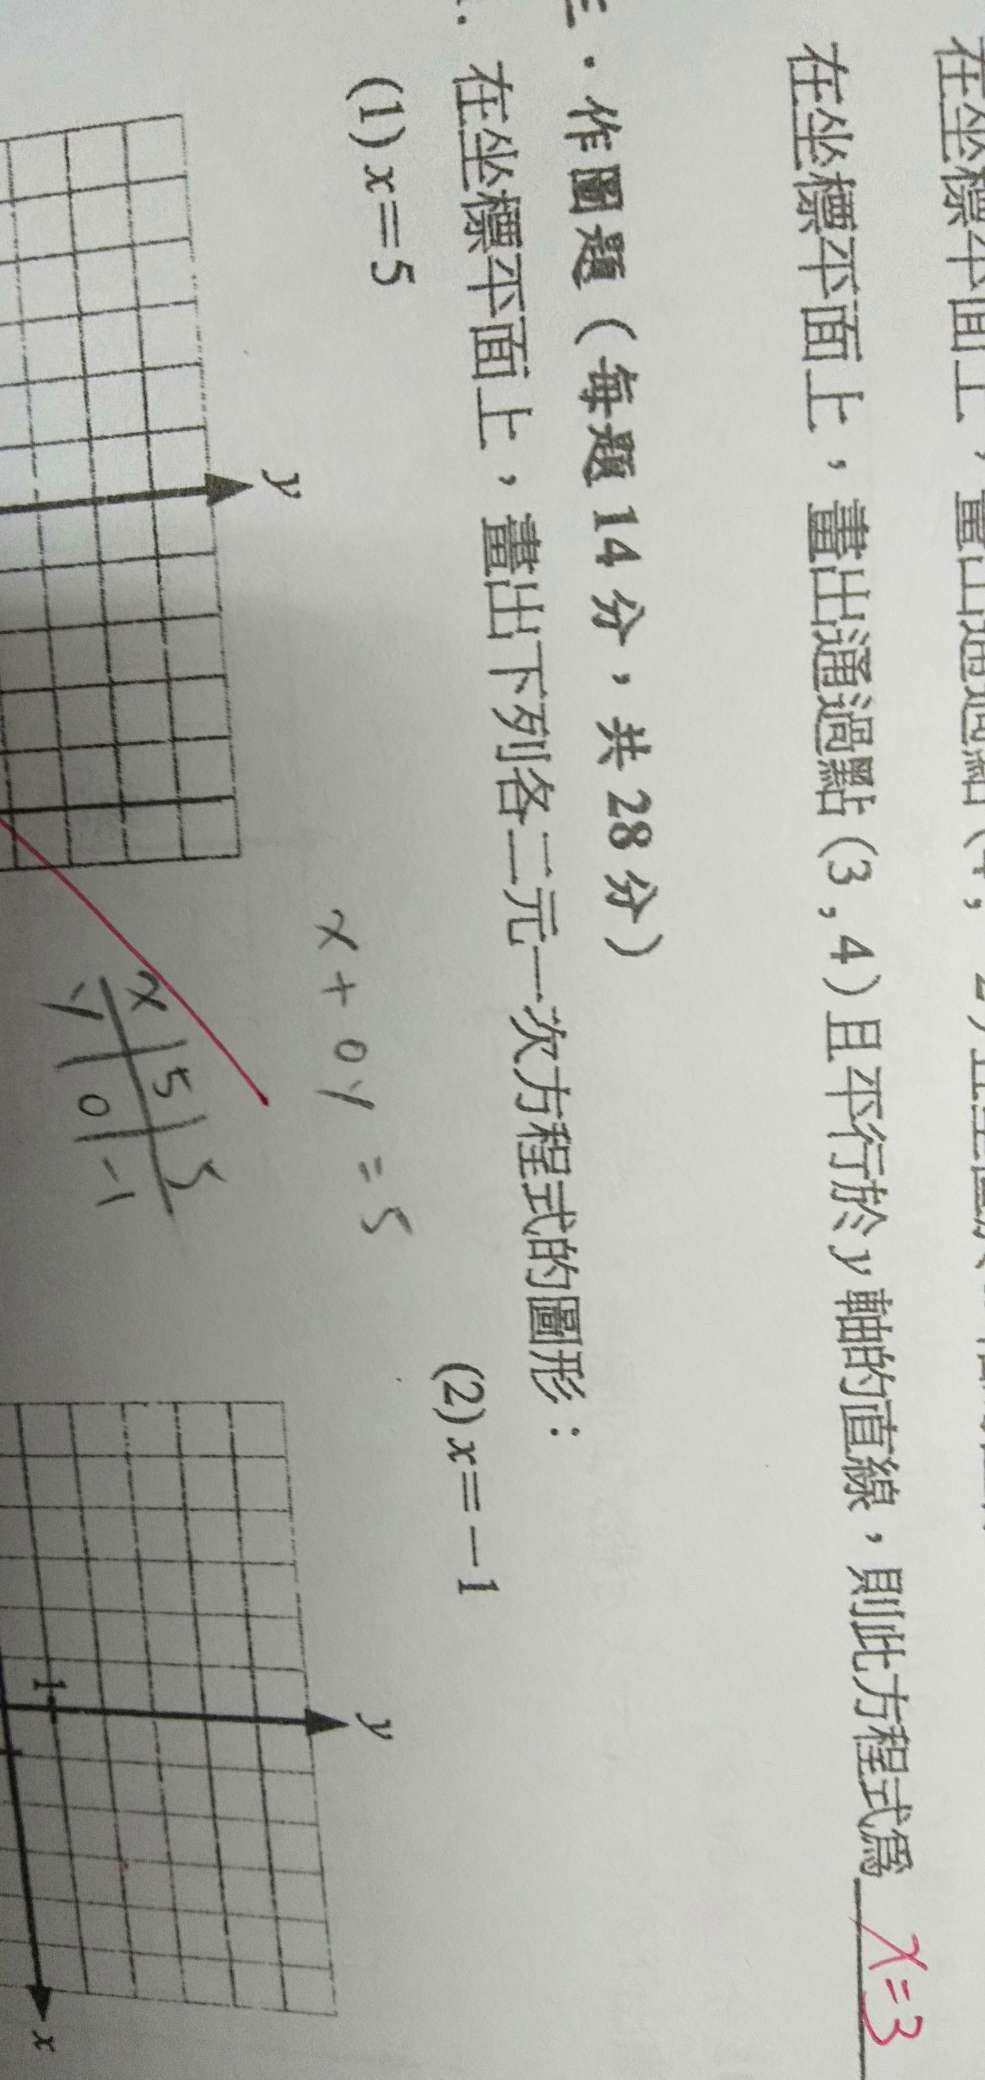 在坐標平面上，畫出通過點(4，
在坐標平面上，畫出通過點(3,4)且平行於y軸的直線，則此方程式為 x=3
三．作圖題（每題14分，共28分）
在坐標平面上，畫出下列各二元一次方程式的圖形：
(1) x=5
(2) x=－1
x+0y=5
x 5 5
y 0 -1
y
y
1
x